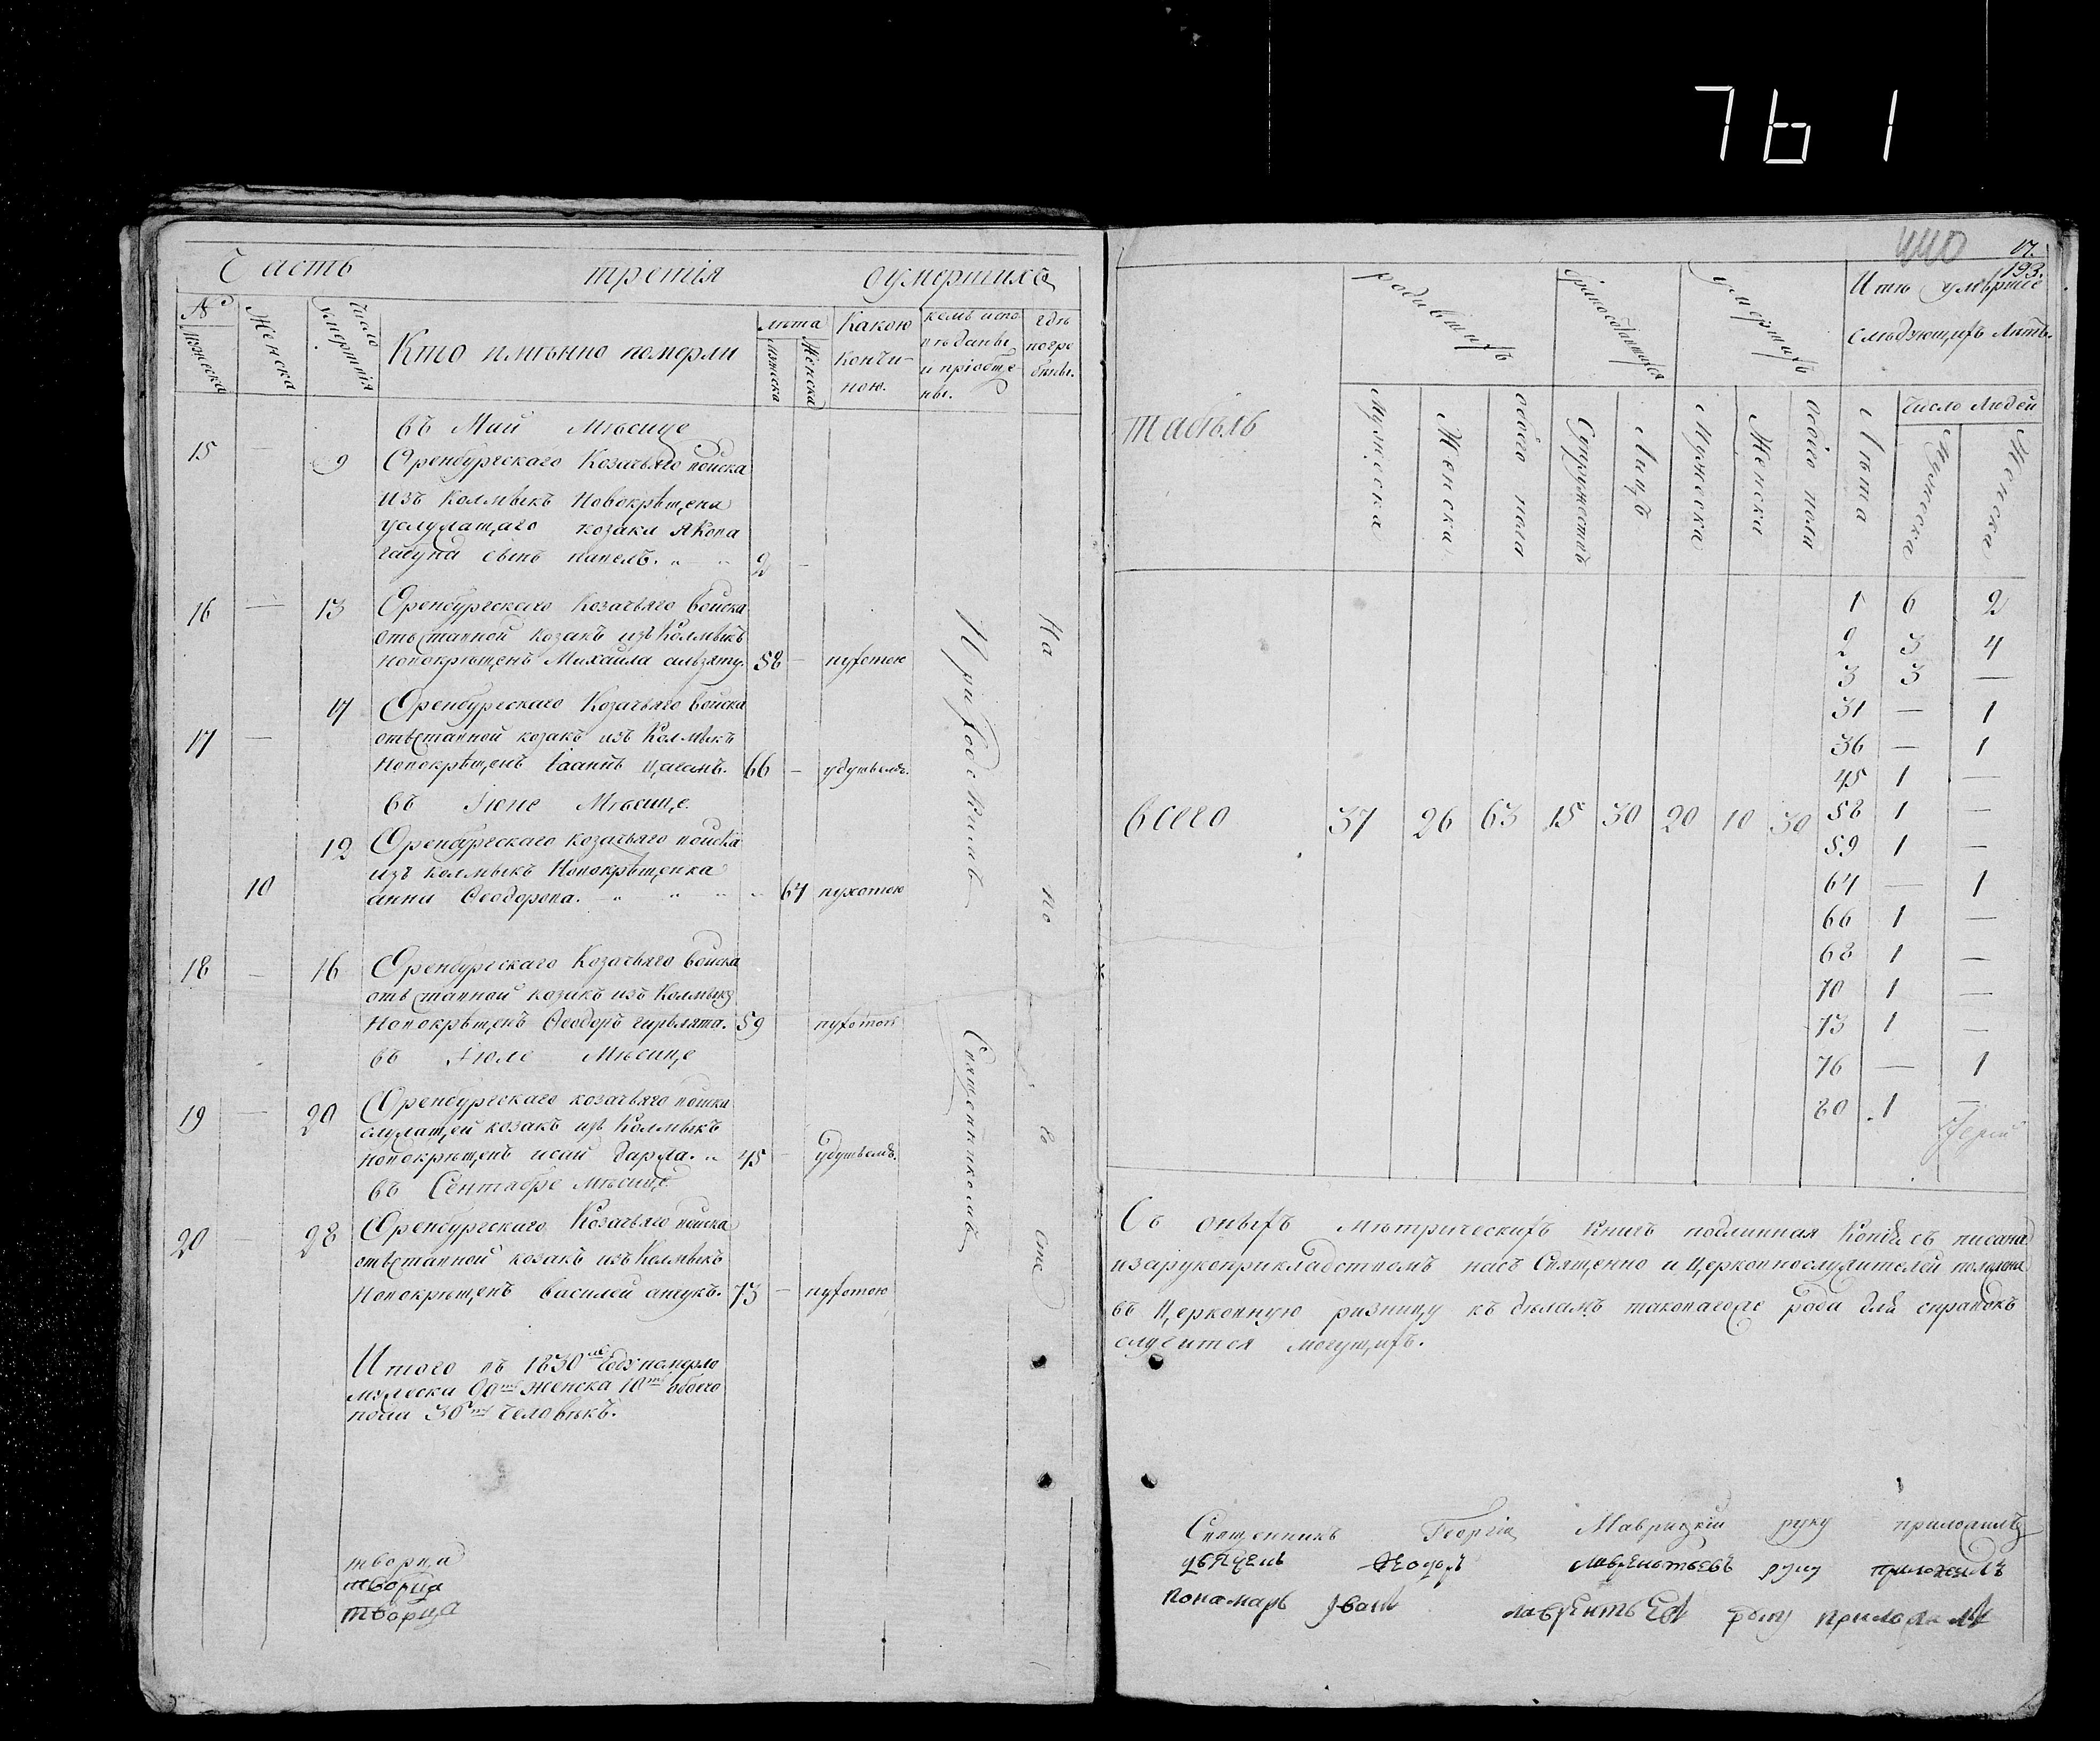 761
Часть третія оумершихъ
№
Мужеска
Женска
Число умертвія
Кто имѣнно померли
лѣта
Мужеска
Женска
Какою кончи-
ною.
кемъ испо-
вѣданы
и пріобще-
ны.
гдѣ
погре
бены.
въ Маи Мѣсице
15 — 9 Оренбургскаго Козачьяго войска
изъ Колмыкъ Новокрѣщена
козака Якова
сынъ павелъ. 2 —
16 — 13 Оренбургскаго Козачьяго войска
отъставной козакъ изъ Колмыкъ
Новокрѣщенъ Михаила 58 — чухотою
17 — 17 Оренбургскаго Козачьяго войска
отъставной козакъ изъ Колмыкъ
Новокрѣщенъ Іаанъ 66 — удушьемъ.
въ Іюне Мѣсице.
12 Оренбургскаго козачьяго войска
изъ Колмыкъ Новокрѣщенка
10 анна Ѳеодорова. 64 чухотою
18 — 16 Оренбургскаго Козачьяго войска
отъставной козакъ изъ Колмыкъ
Новокрѣщенъ Ѳеодоръ 59 чухотою
въ Іюле Мѣсице
19 — 20 Оренбургскаго козачьяго войска
служащей козакъ изъ Колмыкъ
Новокрѣщенъ исай 45 — удушьемъ.
въ Сентебре мѣсице
20 — 28 Оренбургскаго Козачьяго войска
отъставной козакъ изъ Колмыкъ
Новокрѣщенъ василей 73 — чухотою
Приходскимъ Священникомъ
На
Итого въ 1830мъ году померло
мужеска 20ть женска 10ть обоего
пола 30ть Человѣкъ.
творца
творца
творца
440
17.
193.
табѣль
родившихъ
умершихъ
Итогъ умершіе
слѣдующихъ лѣтъ.
Мужеска
Женска
обоего пола
Супружествъ
Лицъ
Мужеска
Женска
обоего пола
Лѣта
Число людей
Мужеска
Женска
1 6 2
2 3 4
3 3 —
31 — 1
36 — 1
45 1 —
всего 37 26 63 15 30 20 10 30 58 1 —
59 1 —
64 — 1
66 1 —
68 1 —
70 1 —
73 1 —
76 — 1
80 1 —
Съ оныхъ мѣтрическихъ книгъ подлинная Копія съ писана
изарукоприкладствомъ насъ Священно и церковнослужителей положена
въ Церковную ризницу къ дѣламъ таковагоже рода для справокъ
случится могущихъ.
Священникъ Георгій Маврицкій руку приложилъ
Ѳеодоръ лаврентьевъ руку приложилъ
пономарь Іванъ лаврентьевъ руку приложилъ